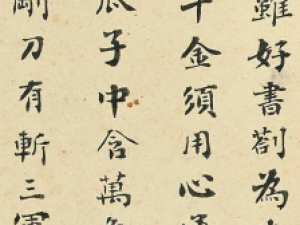 雖好書劄為
金須用心
子中含萬
剛刀有斬三